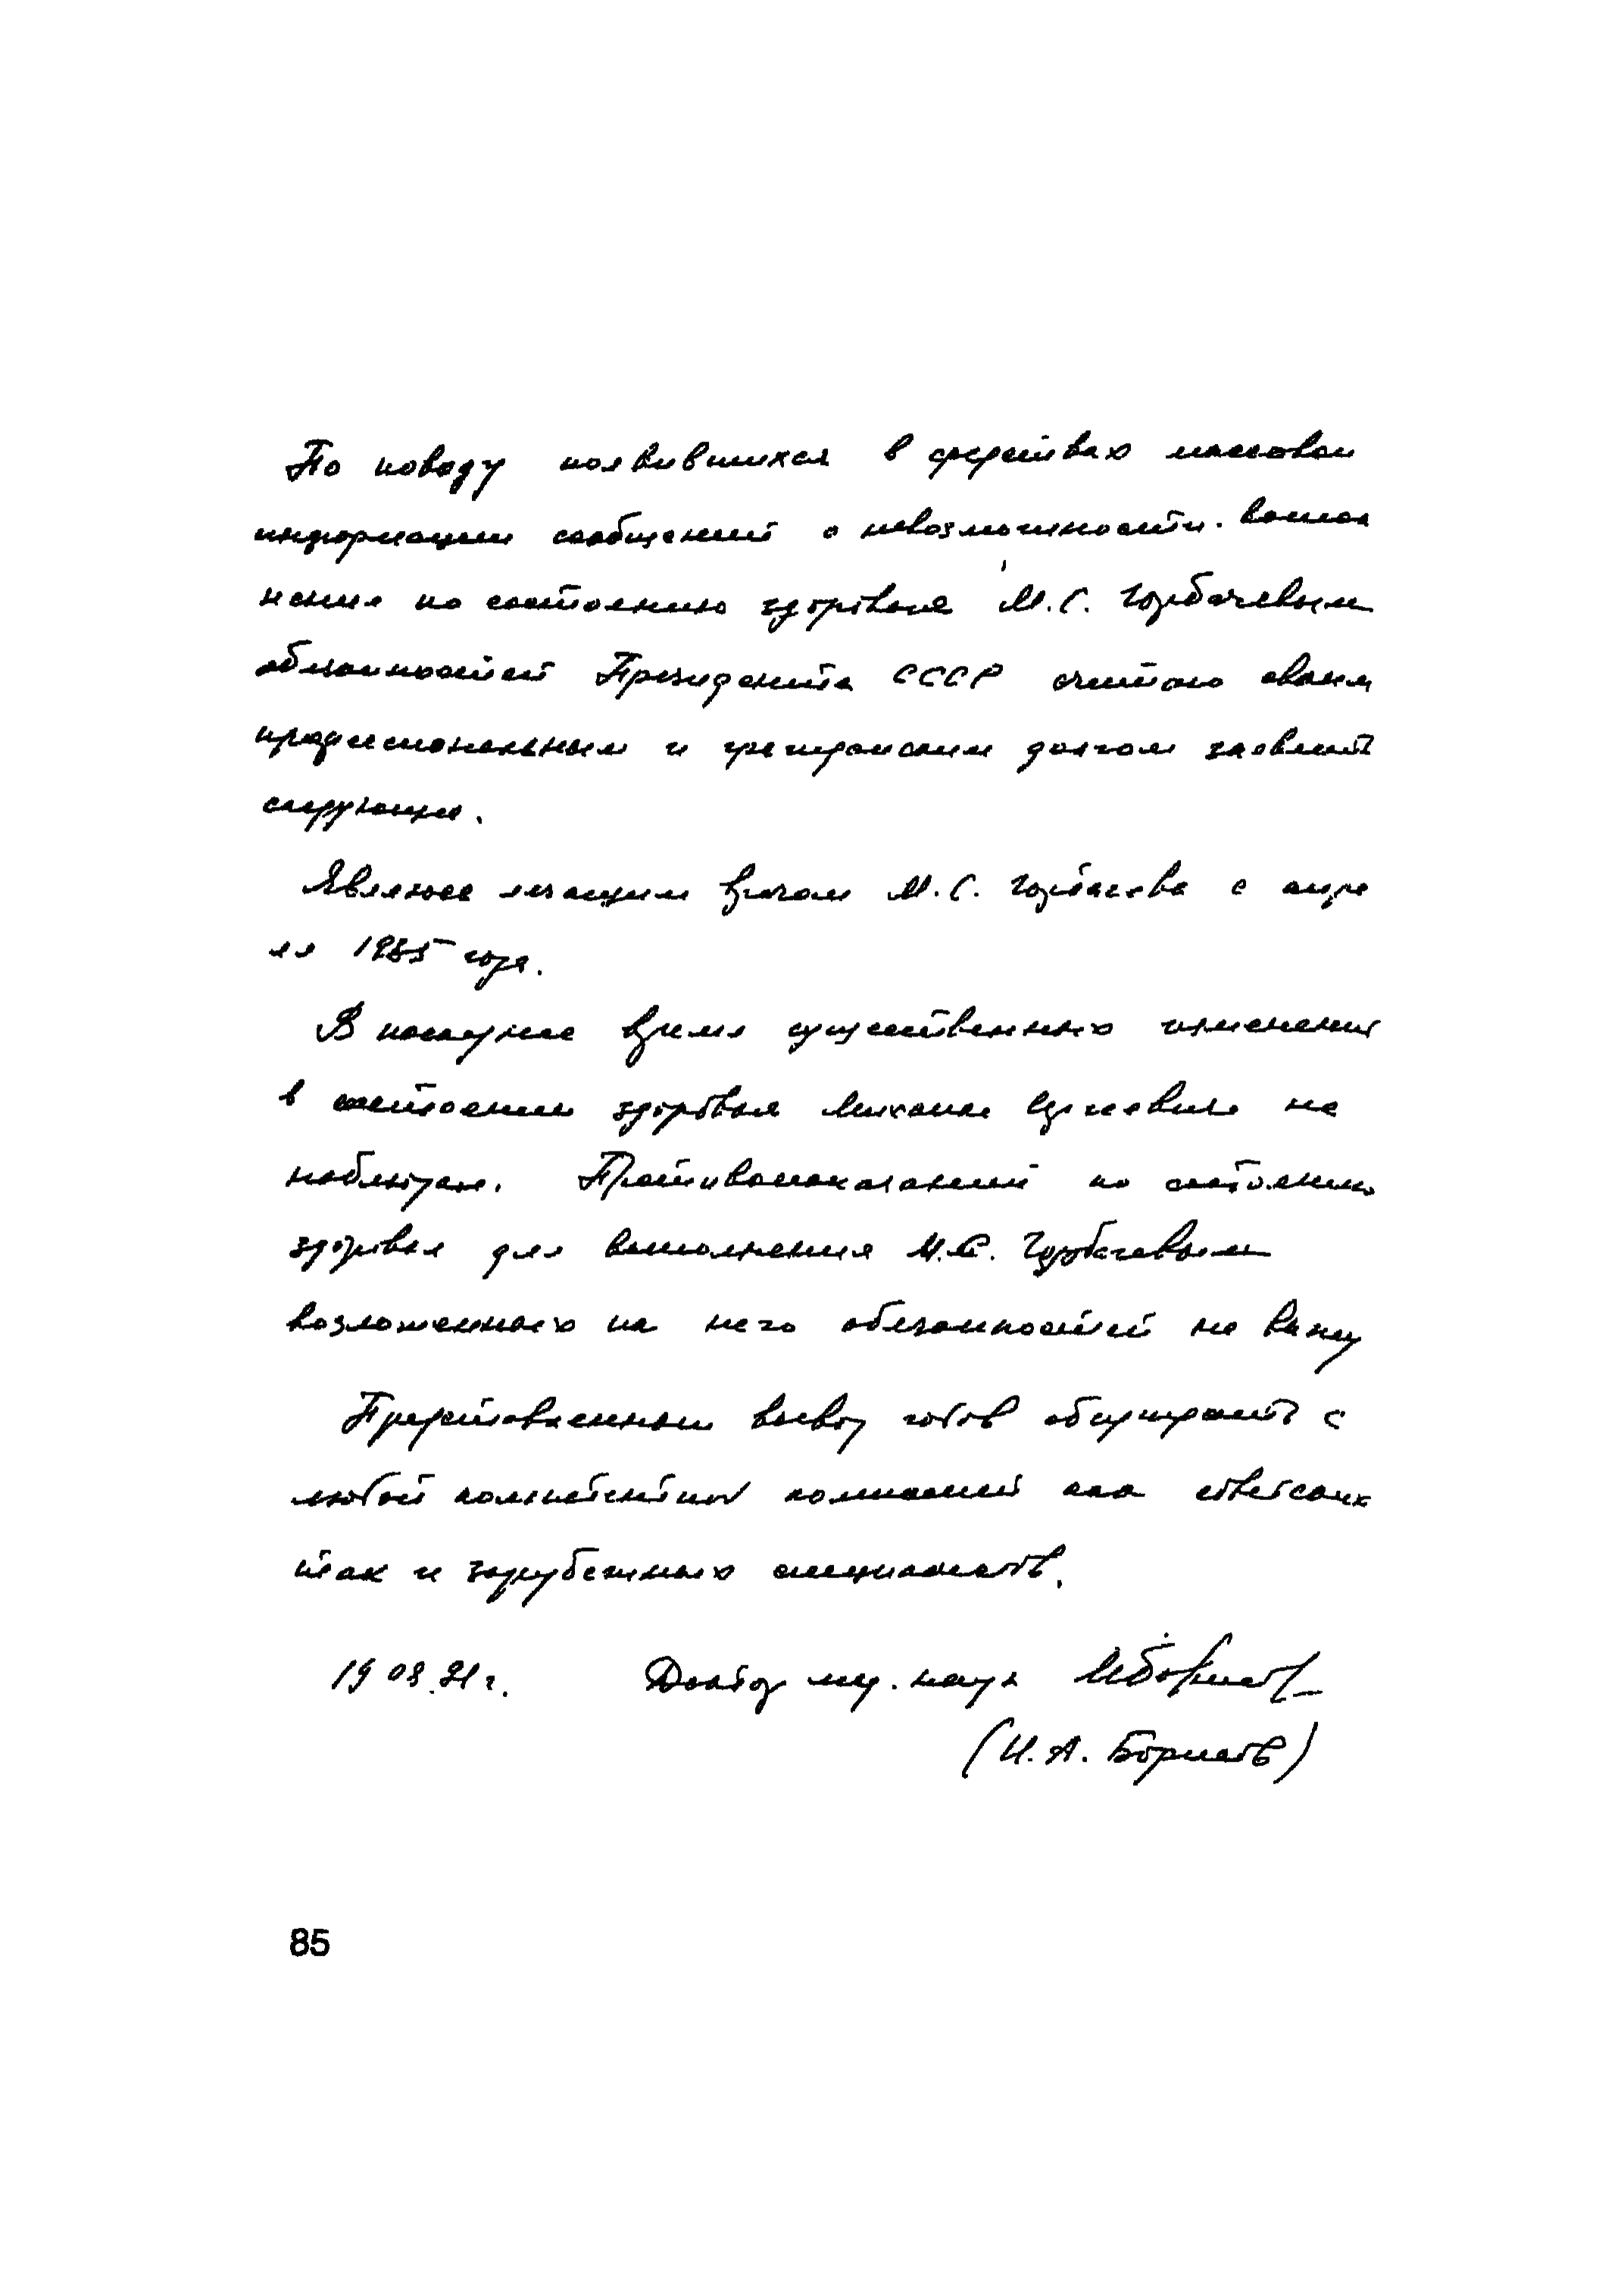 По поводу появившихся в средствах массовой
информации сообщений о невозможности выпол
нения по состоянию здоровья М.С. Горбачевым
обязанностей Президента СССР считаю своим
профессиональным и гражданским долгом заявить
следующее.
Являюсь лечащим врачом М.С. Горбачева с апре
ля 1985 года.
В последнее время существенных изменений
в состоянии здоровья Михаила Сергеевича не
наблюдаю. Противопоказаний по состоянию
здоровья для выполнения М.С. Горбачевым
возложенных на него обязанностей не вижу
Представленный вывод готов обсуждать с
любой компетентной комиссией как советских
так и зарубежных специалистов.
19 08.91 г. Доктор мед. наук ИБорисов
(И.А. Борисов)
85